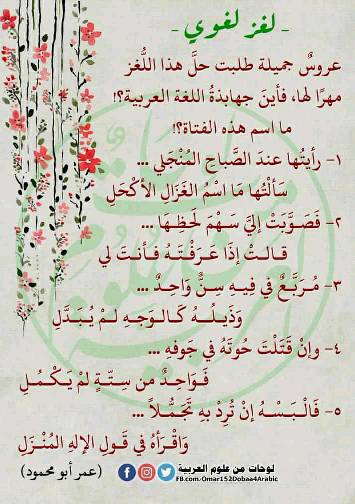 - لغز لغوي -
عروسٌ جميلة طلبت حلَّ هذا اللُّغز
مهرًا لها، فأينَ جهابذةُ اللغة العربية؟!
ما اسم هذه الفتاة؟!
١- رأيتُها عندَ الصَّباحِ المُنْجَلي ...
سَأَلتُها مَا اسْمُ الغَزَالِ الأَكْحَلِ
٢- فَصَوَّبَتْ إليَّ سَهْمَ لَحظِهَا ...
قَالتْ إذَا عَرَفْتَهُ فأنتَ لي
٣- مُرَبَّعٌ في فِيهِ سِنٌّ وَاحِدٌ ...
وَذَيلُهُ كالوَجهِ لمْ يُبَدَّلِ
٤- وإنْ قَتَلْتَ حُوتَهُ في جَوفهِ ...
فَوَاحِدٌ من سِتَّةٍ لمْ يَكْمُلِ
٥- فَالْبَسْهُ إنْ تُرِدْ بهِ تَجَمُّلاً ...
وَاقْرَأهُ في قَولِ الإلهِ المُنْزَلِ
(عمر أبو محمود)
لوحات من علوم العربية
FB.com/Omar152Dobaa4Arabic